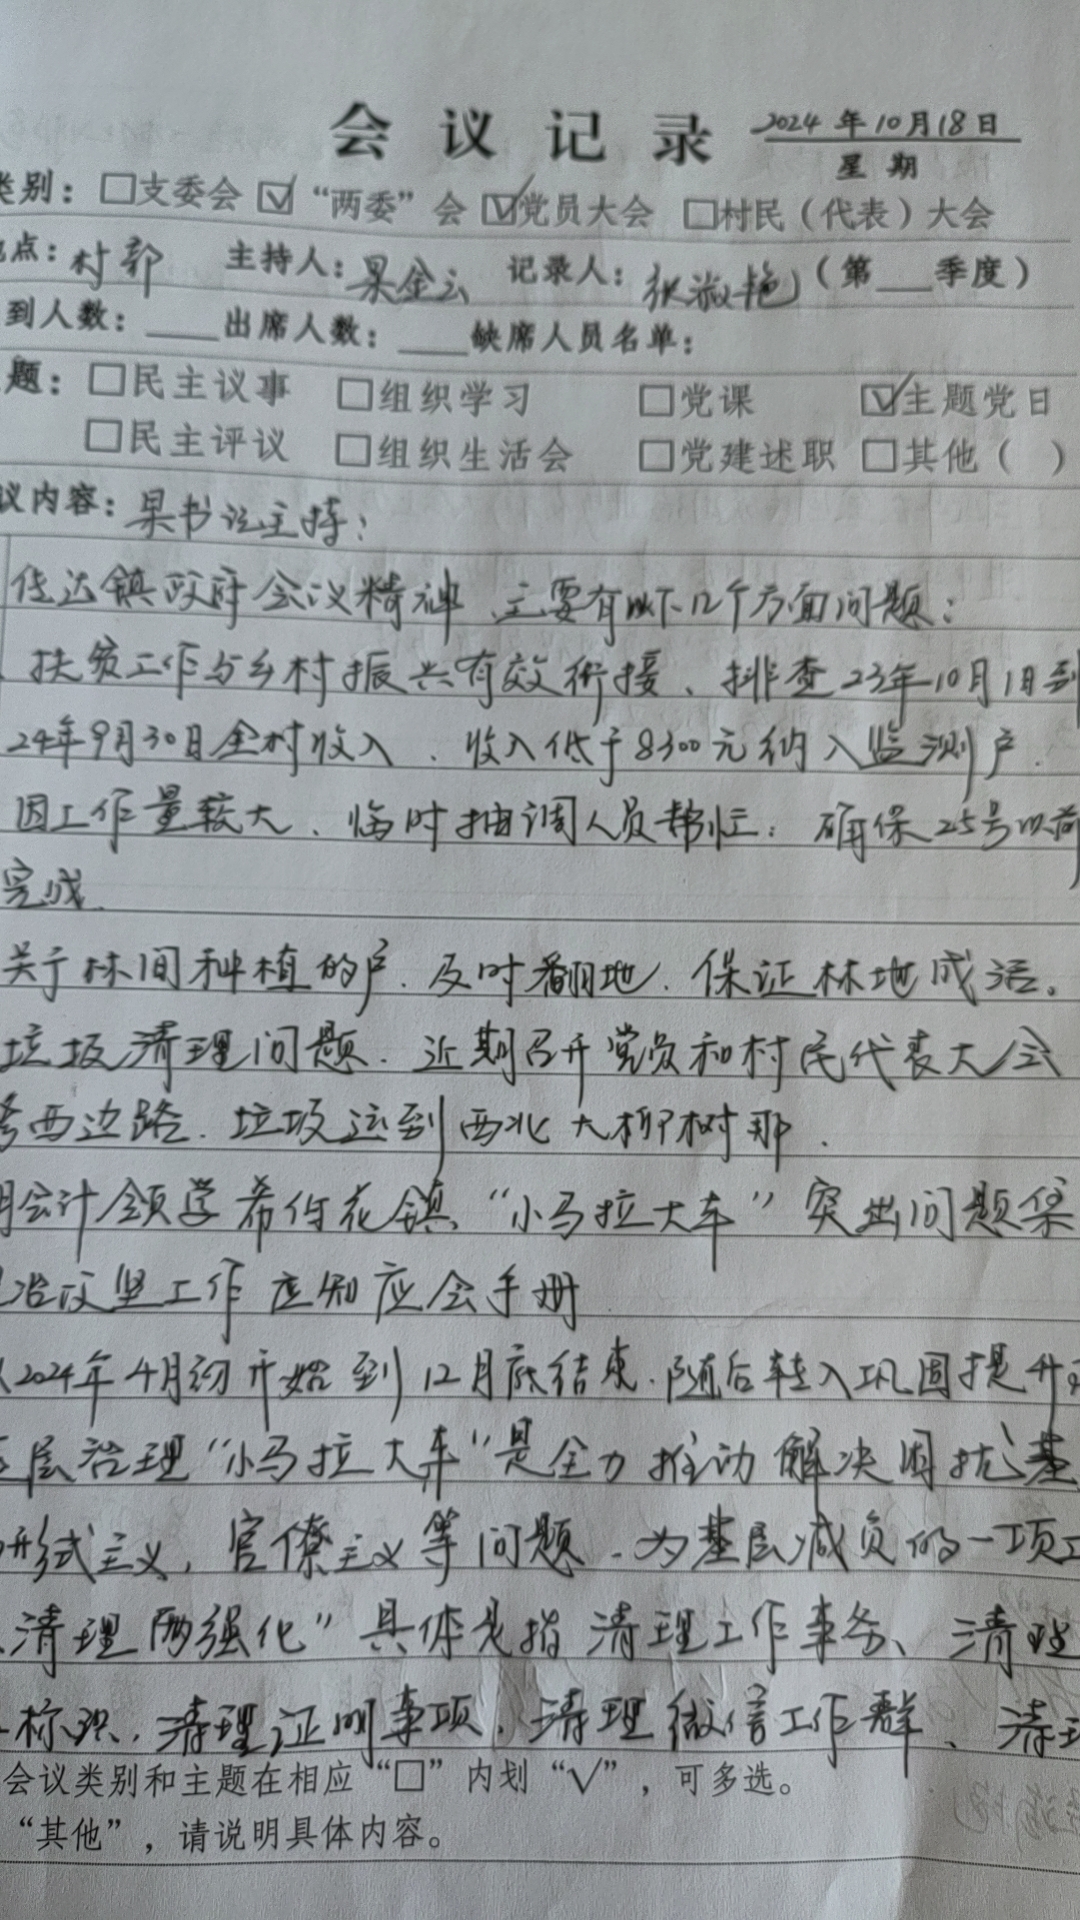 会议记录 2024年10月18日
星期
类别：□支委会 ☑“两委”会 ☑党员大会 □村民（代表）大会
点：村部 主持人：果金云 记录人：张淑艳（第___季度）
到人数：___出席人数：___缺席人员名单：
题：□民主议事 □组织学习 □党课 ☑主题党日
□民主评议 □组织生活会 □党建述职 □其他（ ）
议内容：果书记主持：
传达镇政府会议精神、主要有以下几个方面问题：
扶贫工作与乡村振兴有效衔接、排查23年10月1日到
24年9月30日全村收入、收入低于8300元纳入监测户.
因工作量较大、临时抽调人员帮忙：确保25号以前
完成.
关于林间种植的户.及时翻地.保证林地成活。
垃圾清理问题.近期召开党员和村民代表大会
西边路.垃圾运到西北大柳树那.
会计领学希伯花镇“小马拉大车”突出问题集
治攻坚工作应知应会手册
2024年4月初开始到12月底结束.随后转入巩固提升
层治理“小马拉大车”是全力推动解决困扰基
形式主义，官僚主义等问题.为基层减负的一项工
清理两强化”具体是指清理工作事务、清理
标识.清理证明事项、清理微信工作群、清理
会议类别和主题在相应“□”内划“√”，可多选。
“其他”，请说明具体内容。